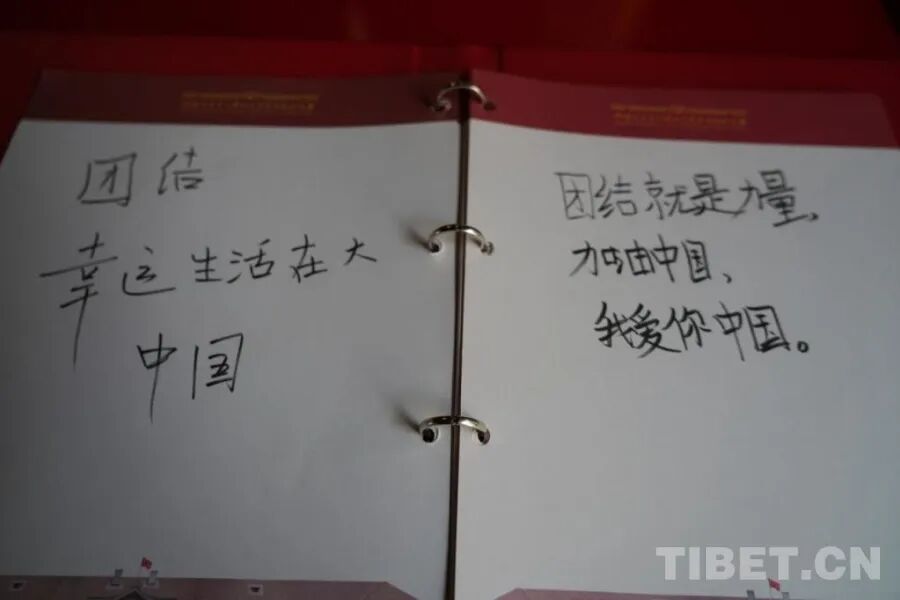 团结
幸运生活在大
中国
团结就是力量、
加油中国、
我爱你中国。
TIBET.CN